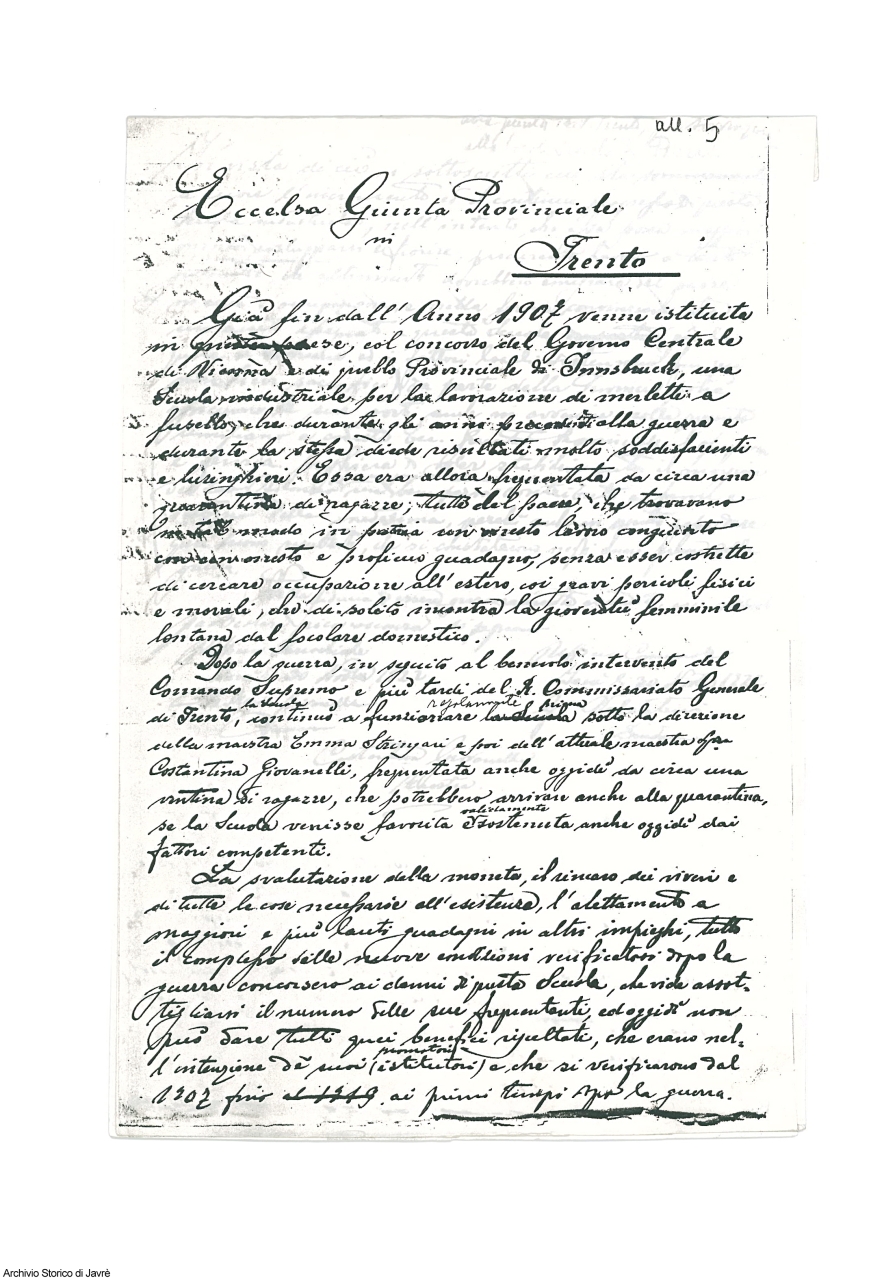 all. 5
Eccelsa Giunta Provinciale
in
Trento
Già fin dall'Anno 1907 venne istituita
in questo paese, col concorso del Governo Centrale
di Vienna e di quello Provinciale di Innsbruck, una
Scuola industriale per la lavorazione di merletti a
fusello, che durante gli anni precedenti alla guerra e
durante la stessa diede risultati molto soddisfacienti
e lusinghieri. Essa era allora frequentata da circa una
quarantina di ragazze, tutte del paese, che trovavano
modo in patria un onesto lavoro congiunto
con un onesto e proficuo guadagno, senza esser costrette
di cercare occupazione all'estero, coi gravi pericoli fisici
e morali, che di solito incontra la gioventù femminile
lontana dal focolare domestico.
Dopo la guerra, in seguito al benevolo intervento del
Comando Supremo e più tardi del R. Commissariato Generale
la Scuola regolarmente prima
di Trento, continuò a funzionare la Scuola sotto la direzione
della maestra Emma Stringari e poi dell'attuale maestra
Costantina Giovanelli, frequentata anche oggidì da circa una
ventina di ragazze, che potrebbero arrivare anche alla quarantina,
validamente
se la Scuola venisse favorita e sostenuta anche oggidì dai
fattori competenti.
La svalutazione della moneta, il rincaro dei viveri e
di tutte le cose necessarie all'esistenza, l'alettamento a
maggiori e più lauti guadagni in altri impieghi, tutto
il complesso delle nuove condizioni verificatesi dopo la
guerra concorsero ai danni di questa Scuola, che vide assot-
tigliarsi il numero delle sue frequentanti, ed oggidì non
può dare tutti quei benefici risultati, che erano nel-
promotori
l'intenzione dei suoi (istitutori) e che si verificarono dal
1907 fino al 1919 ai primi tempi dopo la guerra.
Archivio Storico di Javrè